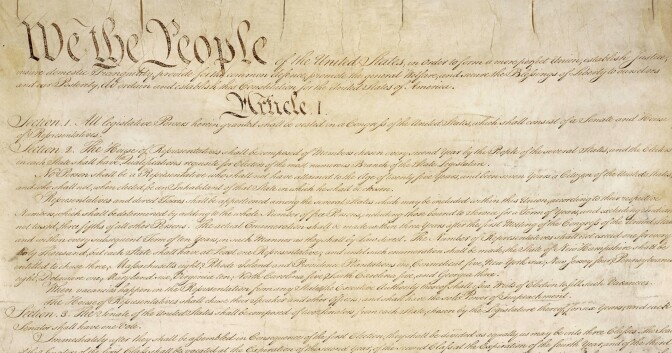 We the People of the United States, in Order to form a more perfect Union, establish Justice,
insure domestic Tranquility, provide for the common defence, promote the general Welfare, and secure the Blessings of Liberty to ourselves
and our Posterity, do ordain and establish this Constitution for the United States of America.
Article. I.
Section. 1. All legislative Powers herein granted shall be vested in a Congress of the United States, which shall consist of a Senate and House
of Representatives.
Section. 2. The House of Representatives shall be composed of Members chosen every second Year by the People of the several States, and the Electors
in each State shall have the Qualifications requisite for Electors of the most numerous Branch of the State Legislature.
No Person shall be a Representative who shall not have attained to the Age of twenty five Years, and been seven Years a Citizen of the United States,
and who shall not, when elected, be an Inhabitant of that State in which he shall be chosen.
Representatives and direct Taxes shall be apportioned among the several States which may be included within this Union, according to their respective
Numbers, which shall be determined by adding to the whole Number of free Persons, including those bound to Service for a Term of Years, and excluding Indians
not taxed, three fifths of all other Persons. The actual Enumeration shall be made within three Years after the first Meeting of the Congress of the United States,
and within every subsequent Term of ten Years, in such Manner as they shall by Law direct. The Number of Representatives shall not exceed one for every
thirty Thousand, but each State shall have at Least one Representative; and until such enumeration shall be made, the State of New Hampshire shall be
entitled to chuse three, Massachusetts eight, Rhode Island and Providence Plantations one, Connecticut five, New York six, New Jersey four, Pennsylvania
eight, Delaware one, Maryland six, Virginia ten, North Carolina five, South Carolina five, and Georgia three.
When vacancies happen in the Representation from any State, the Executive Authority thereof shall issue Writs of Election to fill such Vacancies.
The House of Representatives shall chuse their Speaker and other Officers; and shall have the sole Power of Impeachment.
Section. 3. The Senate of the United States shall be composed of two Senators from each State, chosen by the Legislature thereof, for six Years; and each
Senator shall have one Vote.
Immediately after they shall be assembled in Consequence of the first Election, they shall be divided as equally as may be into three Classes.
of the first Class shall be vacated at the Expiration of the second Year, of the second Class at the Expiration of the fourth Year, and of the third